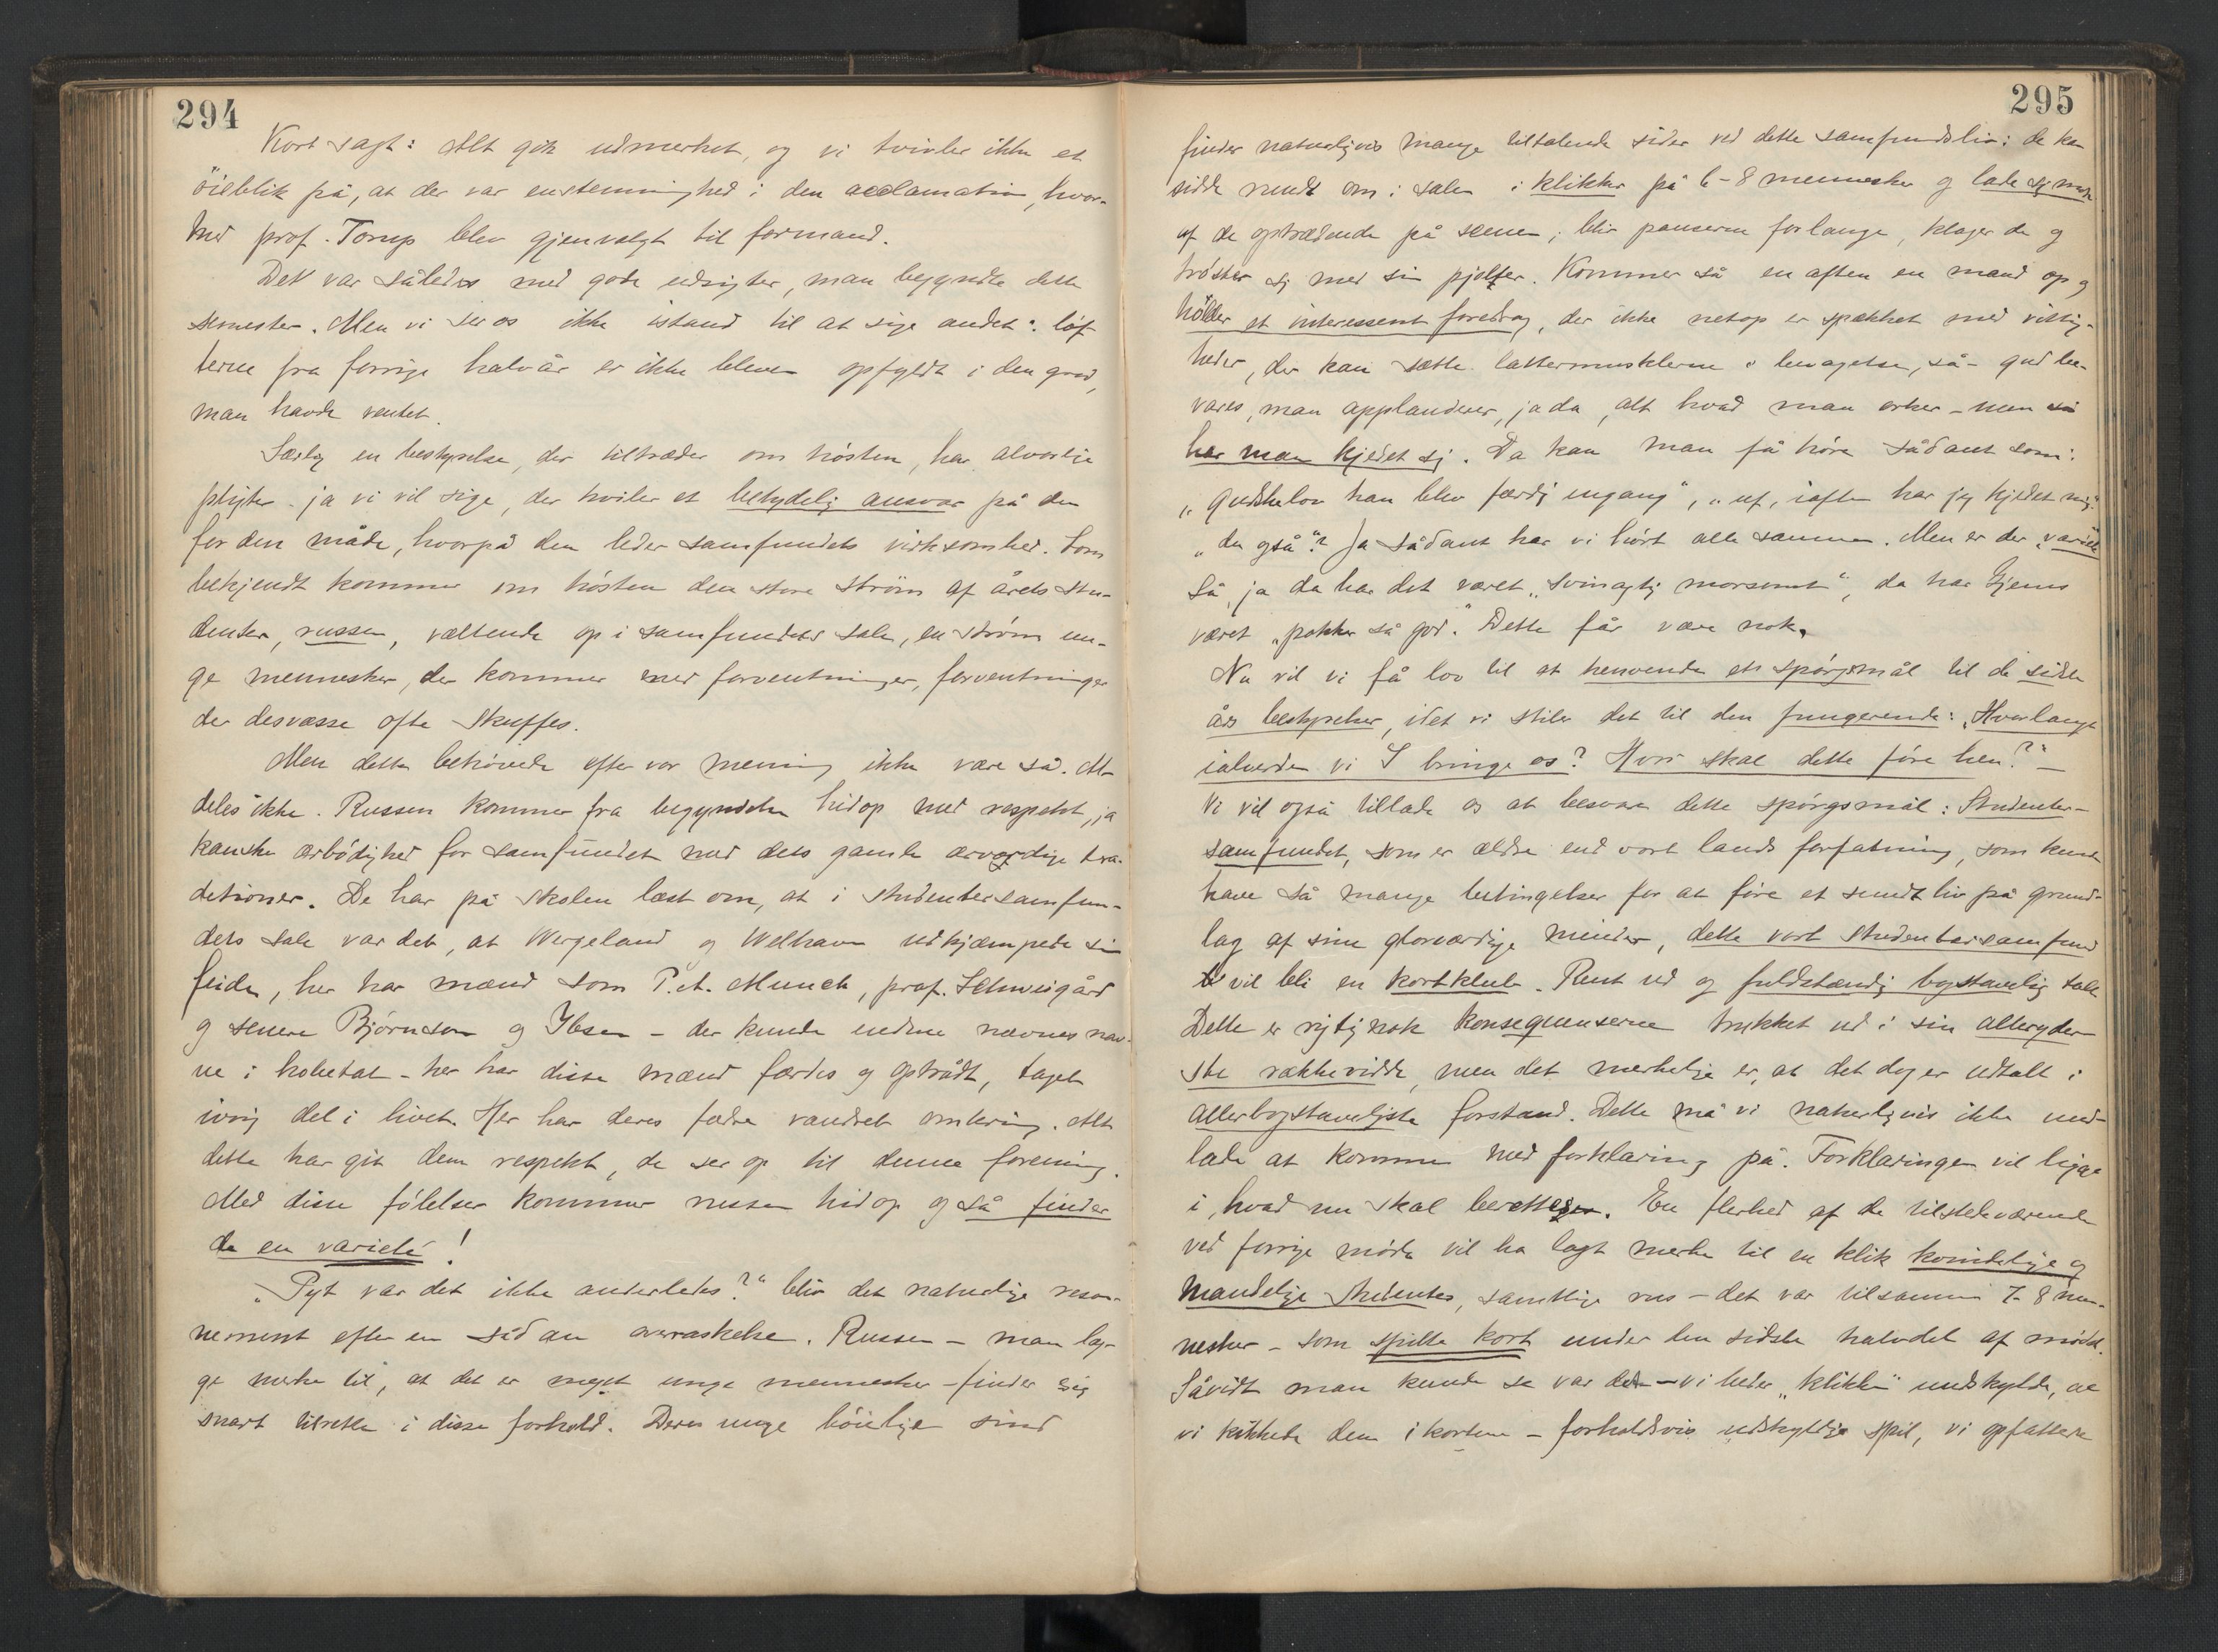 294
Kort sagt: Alt gik udmerket, og vi tvivler ikke et
öieblik på, at der var enstemmighed i den acclamation, hvor-
med prof. Torup blev gjenvalgt til formand.
Det var således med gode udsigter, man begyndte dette
semester. Men vi ser os ikke istand til at sige andet: löf-
terne fra forrige halvår er ikke bleven opfyldt i den grad,
man havde ventet.
Særlig en bestyrelse, der tiltræder om hösten, har alvorlige
pligter. ja vi vil sige, der hviler et betydelig ansvar på den
for den måde, hvorpå den leder samfundets virksomhed. Som
bekjendt kommer om hösten den store ström af årets stu-
denter, russen, væltende op i samfundets sale, en ström un-
ge mennesker, der kommer med forventninger, forventninger
der desværre ofte skuffes.
Men dette behövede efter vor mening ikke være så. Al-
deles ikke. Russen kommer fra begyndelsen hidop med respekt, ja
kanske ærbödighed for samfundet med dets gamle ærværdige tra-
detioner. De har på skolen læst om, at i studentersamfun-
dets sale var det, at Wergeland og Welhaven udkjæmpede sin
feide, her har mænd som P. A. Munch, prof. Schweigård
og senere Björnson og Ibsen - der kunde endnu nævnes nav-
ne i hobetal - her har disse mænd færdes og optrådt, taget
ivrig del i livet. Her har deres fædre vandret omkring. Alt
dette har git dem respekt, de ser op til denne forening.
Med disse fölelser kommer russen hidop og så finder
de en varieté!
"Pyt var det ikke anderledes?" blir det naturlige reson-
nement efter en sådan overraskelse. Russen - man læg-
ge merke til, at det er meget unge mennesker - finder sig
snart tilrette i disse forhold. Deres unge böielige sind
295
finder naturligvis mange tiltalende sider ved dette samfundsliv: de kan
sidde rundt om i salen i klikker på 6-8 mennesker og lade sig more
af de optrædende på scenen; blir pauserne forlange, klager de og
tröster sig med sin pjolter. Kommer så en aften en mand op og
holder et interessent foredrag, der ikke netop er spækket med vittig-
heder, der kan sætte lattermusklerne i bevægelse, så - gud be-
vares, man applauderer, jada, alt hvad man orker - men så
har man kjedet sig. Da kan man få höre sådant som:
"gudskelov han blev færdig engang", "uf, iaften har jeg kjedet mig."
"du også"? Ja sådant har vi hört alle sammen. Men er der "varieté"
så, ja da har det været "svinagtig morsomt", da har Gjems
været "pokker så god." Dette får være nok.
Nu vil vi få lov til at henvende et spörgsmål til de sidste
års bestyrelser, idet vi stiler det til den fungerende: "Hvorlangt
ialverden vil I bringe os? Hvor skal dette före hen?" -
Vi vil også tillade os at besvare dette spörgsmål: Studenter-
samfundet, som er ældre end vort lands forfatning, som kunde
have så mange betingelser for at före et sundt liv på grund-
lag af sine glorværdige minder, dette vort studentersamfund
vil bli en kortklub. Rent ud og fuldstændig bogstavelig talt
Dette er rigtignok konsequenserne trukket ud i sin alleryder-
ste rækkevidde, men det merkelige er, at det dog er udtalt i
allerbogstaveligste forstand. Dette må vi naturligvis ikke und-
lade at komme med forklaring på. Forklaringen vil ligge
i, hvad nu skal berettes. En flerhed af de tilstedeværende
ved forrige möde vil ha lagt merke til en klik kvindelige og
mandelige studenter, samtlige rus - det var tilsammen 7-8 men-
nesker - som spilte kort under den sidste halvdel af mödet.
Såvidt man kunde se var det - vi beder "klikken" undskylde, at
vi kikkede dem i kortene - forholdsvis uskyldige spil, vi opfattede